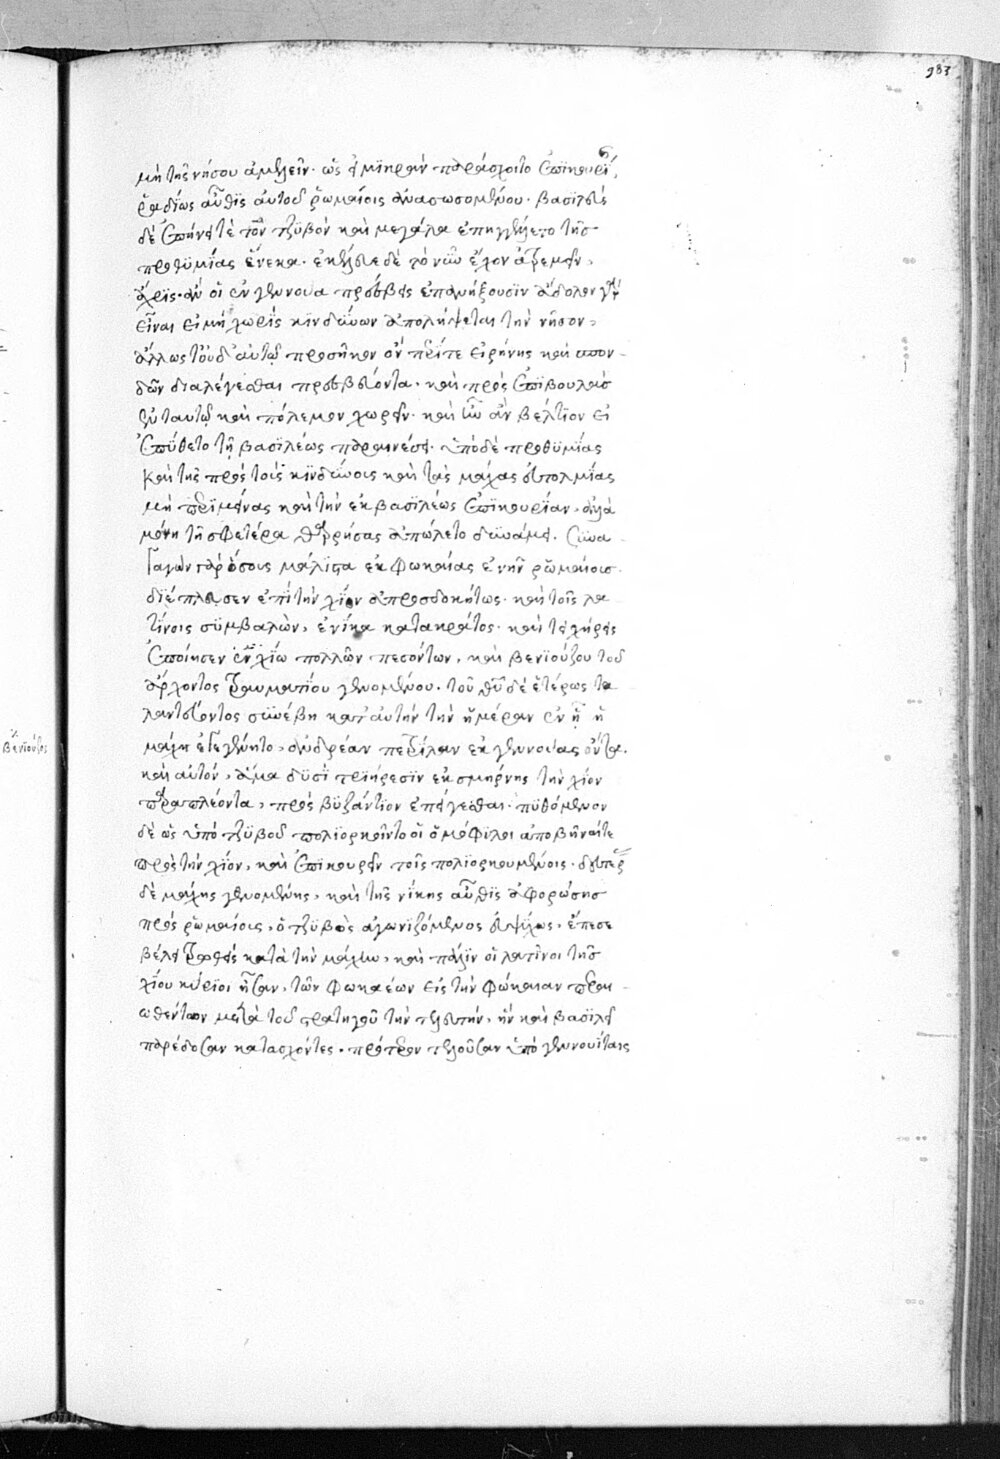 983
μὴ τῆς νήσου ἀμελεῖν· ὡς εἰ μικρὰν παράσχοιτο ἐπικουρί,
ῥαδίως αὖθις αὐτοῦ ῥωμαίοις ἀνασωσομένου· βασιλεὺς
δὲ ἐπήνει τὲ τὸν τζύβον καὶ μεγάλα ἐπηγγέλλετο τῆς
προθυμίας ἕνεκα· ἐκέλευε δὲ τὸ νῦν ἔχον ἀτρεμεῖν,
ἄχρις ἂν οἱ ἐν γεννούα πρέσβεις ἐπανήξουσιν ἄδηλον γὰρ
εἶναι εἰ μὴ χωρὶς κινδύνων ἀπολήψεται τὴν νῆσον,
ἄλλως τ' οὐδ' αὐτῷ προσῆκον ὂν περί τε εἰρήνης καὶ σπον-
δῶν διαλέγεσθαι πρεσβεύοντα· καὶ πρὸς ἐπιβουλὰς
ἐν ταυτῷ καὶ πόλεμον χωρεῖν· καὶ ἦν ἂν βέλτιον εἰ
ἐπύθετο τῇ βασιλέως παραινέσει· ὑπὸ δὲ προθυμίας
καὶ τῆς πρὸς τοὺς κινδύνους καὶ τὰς μάχας εὐτολμίας
μὴ περιμείνας καὶ τὴν ἐκ βασιλέως ἐπικουρίαν, ἀλλὰ
μόνῃ τῇ σφετέρα θαρρήσας ἀπώλετο δυνάμει. συνα-
γαγὼν γὰρ ὅσους μάλιστα ἐκ φωκαίας ἐνῆν ῥωμαίους.
διέπλευσεν ἐπὶ τὴν χίον ἀπροσδοκήτως· καὶ τοῖς λα-
τίνοις συμβαλὼν, ἐνίκα κατακράτος· καὶ τὰ χείρεις
ἐποίησεν ἐν χίω πολλῶν πεσόντων, καὶ βενϊούζου τοῦ
ἄρχοντος τραυματίου γενομένου· τοῦ θεοῦ δὲ ἑτέρως τα
λαντεύοντος συνέβη κατ' αὐτὴν τὴν ἡμέραν ἐν ᾗ ἡ
μάχη ἐγεγένητο, ἀνδρέαν πετρίλαν ἐκ γεννούας ὄντα.
καὶ αὐτὸν, ἅμα δυσὶ τριήρεσιν ἐκ σμύρνης τὴν χίον
παραπλέοντα, πρὸς βυζάντιον ἐπείγεσθαι· πυθόμενον
δὲ ὡς ὑπὸ τζύβου πολιορκοῖντο οἱ ὁμόφυλοι ἀποβῆναί τε
πρὸς τὴν χίον, καὶ ἐπικουρεῖν τοῖς πολιορκουμένοις· δευτέρας
δὲ μάχης γενομένης, καὶ τῆς νίκης αὖθις ἀφορώσης
πρὸς ῥωμαίους, ὁ τζύβος ἀγωνιζόμενος εὐψύχως, ἔπεσε
βέλει τρωθεὶς κατὰ τὴν μάχην, καὶ πάλιν οἱ λατῖνοι τῆς
χίου κύριοι ἦσαν, τῶν φωκαέων εἰς τὴν φώκαιαν περαι-
ωθέντων μετὰ τοῦ στρατηγοῦ τὴν τελευτήν, ἣν καὶ βασιλεῖ
παρέδοσαν κατασχόντες, πρότερον τελοῦσαν ὑπὸ γεννουΐταις
βενϊούζος